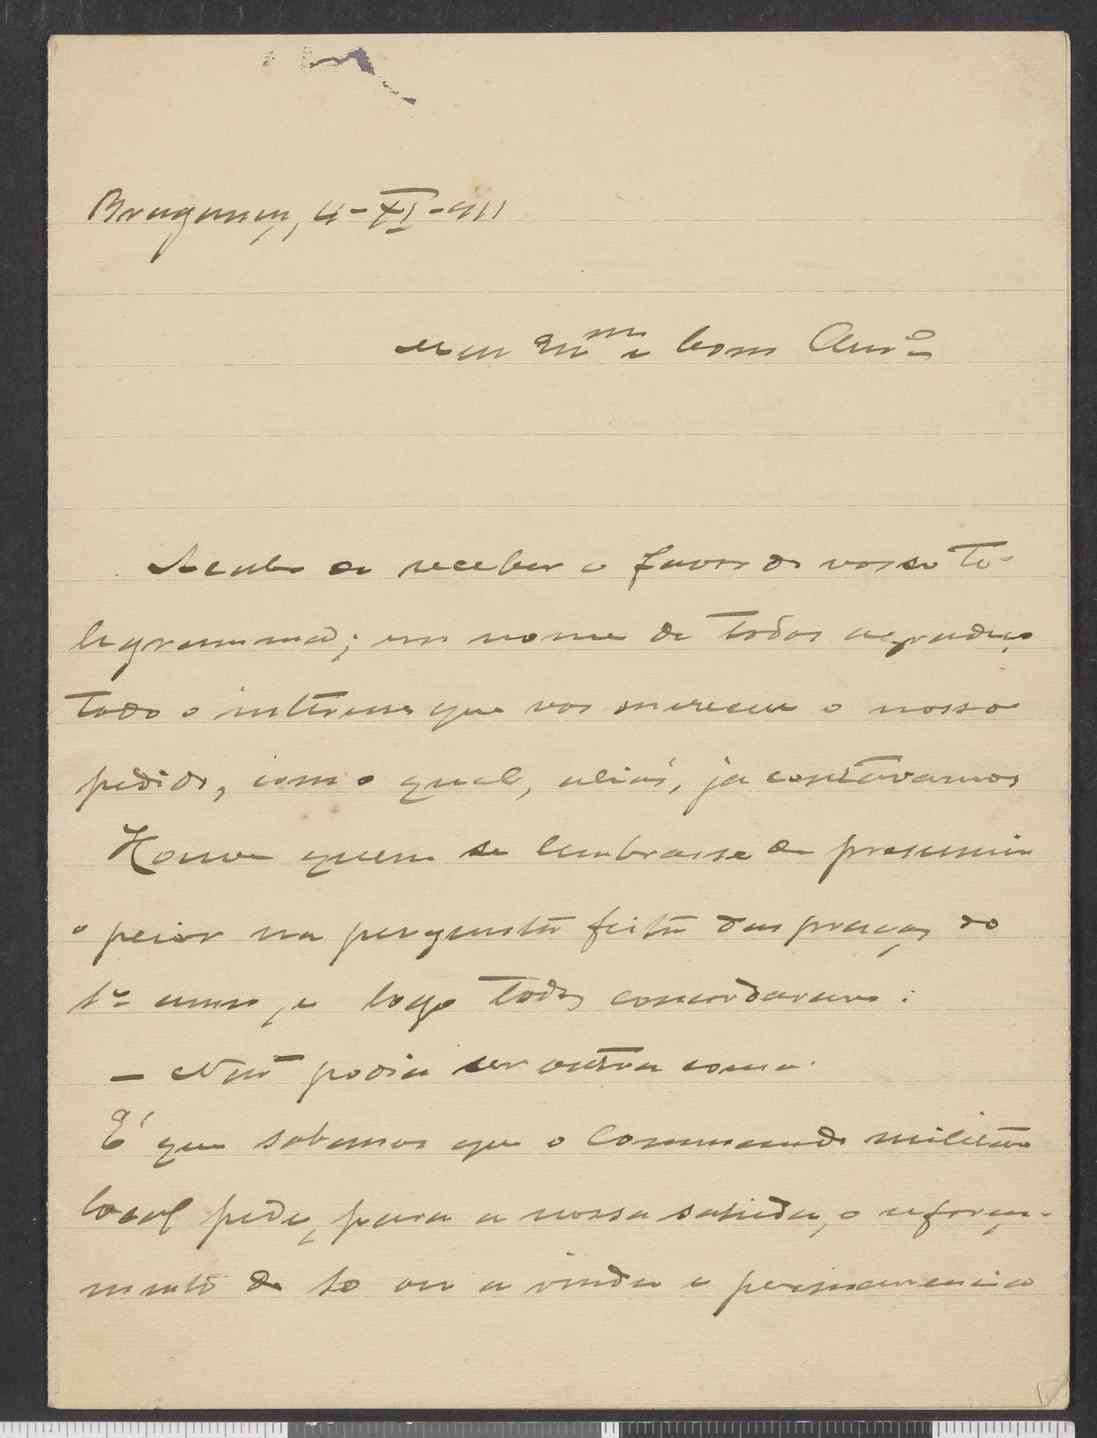 Bragança, 4-XI-911
Meu Exmo e bom Amo
Acabo de receber o favor do vosso te-
legramma; em nome de todos agradeço
todo o interesse que vos mereceu o nosso
pedido, com o qual, aliás, ja contavamos
Houve quem se lembrasse de presumir
o peior na pergunta feita das praças do
1º anno, e logo todos concordaram:
— Não podia ser outra cousa.
É que sabemos que o Commando militar
local pede, para a nossa sahida, o reforça-
mento do 10 ou a vinda e permanencia